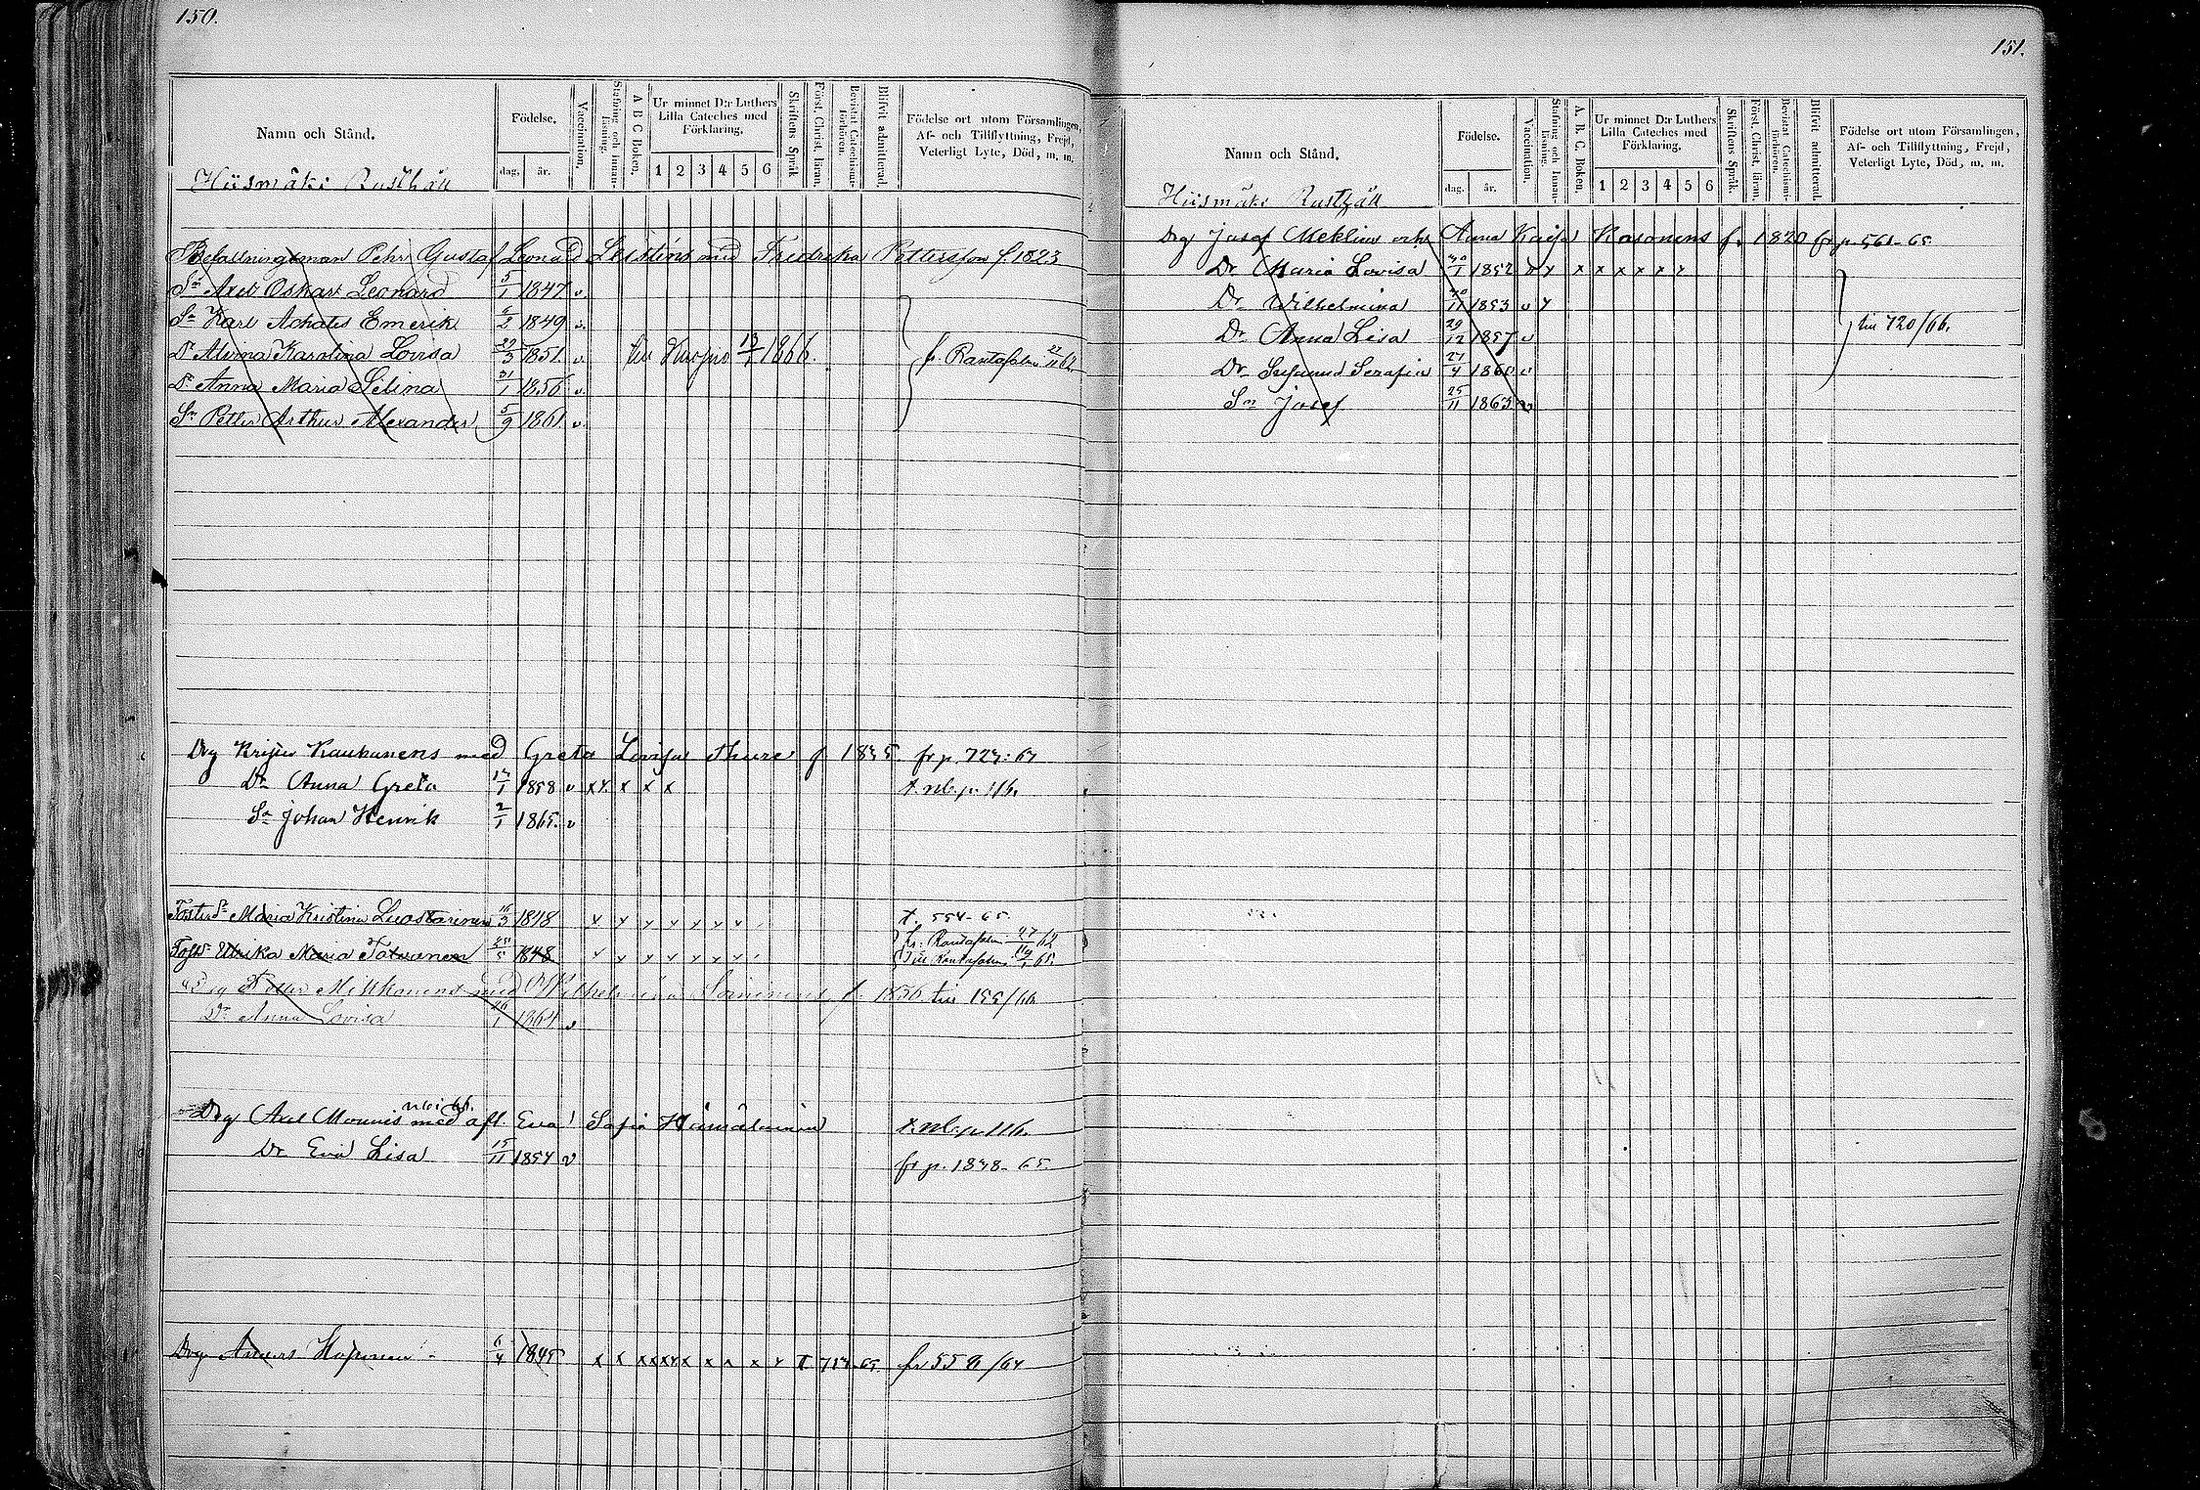 150.
Namn och Stånd.
Födelse.
dag.
år.
Vaccination.
Stafning och innan-
läsning.
A B C Boken.
Ur minnet D:r Luthers
Lilla Cateches med
Förklaring.
1 2 3 4 5 6
Skriftens Språk
Först. Christ. läran.
Bevistat Catechismi-
förhören.
Blifvit admitterad.
Födelse ort utom Församlingen,
Af- och Tillflyttning, Frejd,
Veterligt Lyte, Död, m. m.
Hiismäki Rusthåll
Befallningsman Pehr Gustaf Leonard med Fredrika Pettersson f. 1823
Sn Axel Oskar Leonard 5/1 1847 v.
Sn Karl Achates Emerik 2 1849 v.
Dr Karolina Lovisa 1851 v. till Kuopio 13/1 1866. fr. Rantasalmi
Dr Anna Maria Selina 31/1 1856 v.
Sn Petter Arthur Alexander 5/9 1861 v.
Drg Kaukanens med Greta Lovisa f 1835 fr p. 64
Dr Anna Greta 1858 v x x x x x t. nb. p. 116.
Sn Johan Henrik 2/1 1865 v
Foster Dr Maria Kristina 1848 x x x x x x x t. 554-65.
Ulrika Maria 1848 x x x x x x x fr. Rantasalmi
Till Rantasalmi 65.
Drg Petter Mikkonens med Wilhelmina f. 1836 till 155/66
Dr Anna Lovisa 1864 v
Drg Axel Monnis med afl. Eva Sofia Hämäläinen t. nb. p. 116.
Dr Eva Lisa 15/11 1854 v fr p. 65.
Drg Anders 6/4 1845 x x x x x x x x x x x fr 64
151.
Namn och Stånd.
Födelse.
dag.
år.
Vaccination.
Stafning och Innan-
läsning.
A. B. C. Boken.
Ur minnet D:r Luthers
Lilla Cateches med
Förklaring.
1 2 3 4 5 6
Skriftens Språk.
Först. Christ. läran.
Bevistat Catechismi-
förhören.
Blifvit admitterad.
Födelse ort utom Församlingen,
Af- och Tillflyttning, Frejd,
Veterligt Lyte, Död, m. m.
Hiismäki Rusthåll
Drg Josef Meklius och Anna Kaisa Kasonens f. 1820 fr p. 561-65
Dr Maria Lovisa 30/1 1852 x x x x x x x x
Dr Wilhelmina 1853 v x
Dr Anna Lisa 29/12 1857 v till 720/66.
Dr Susanna Serafia 27/4 1860 v
Sn Josef 25/11 1863 v